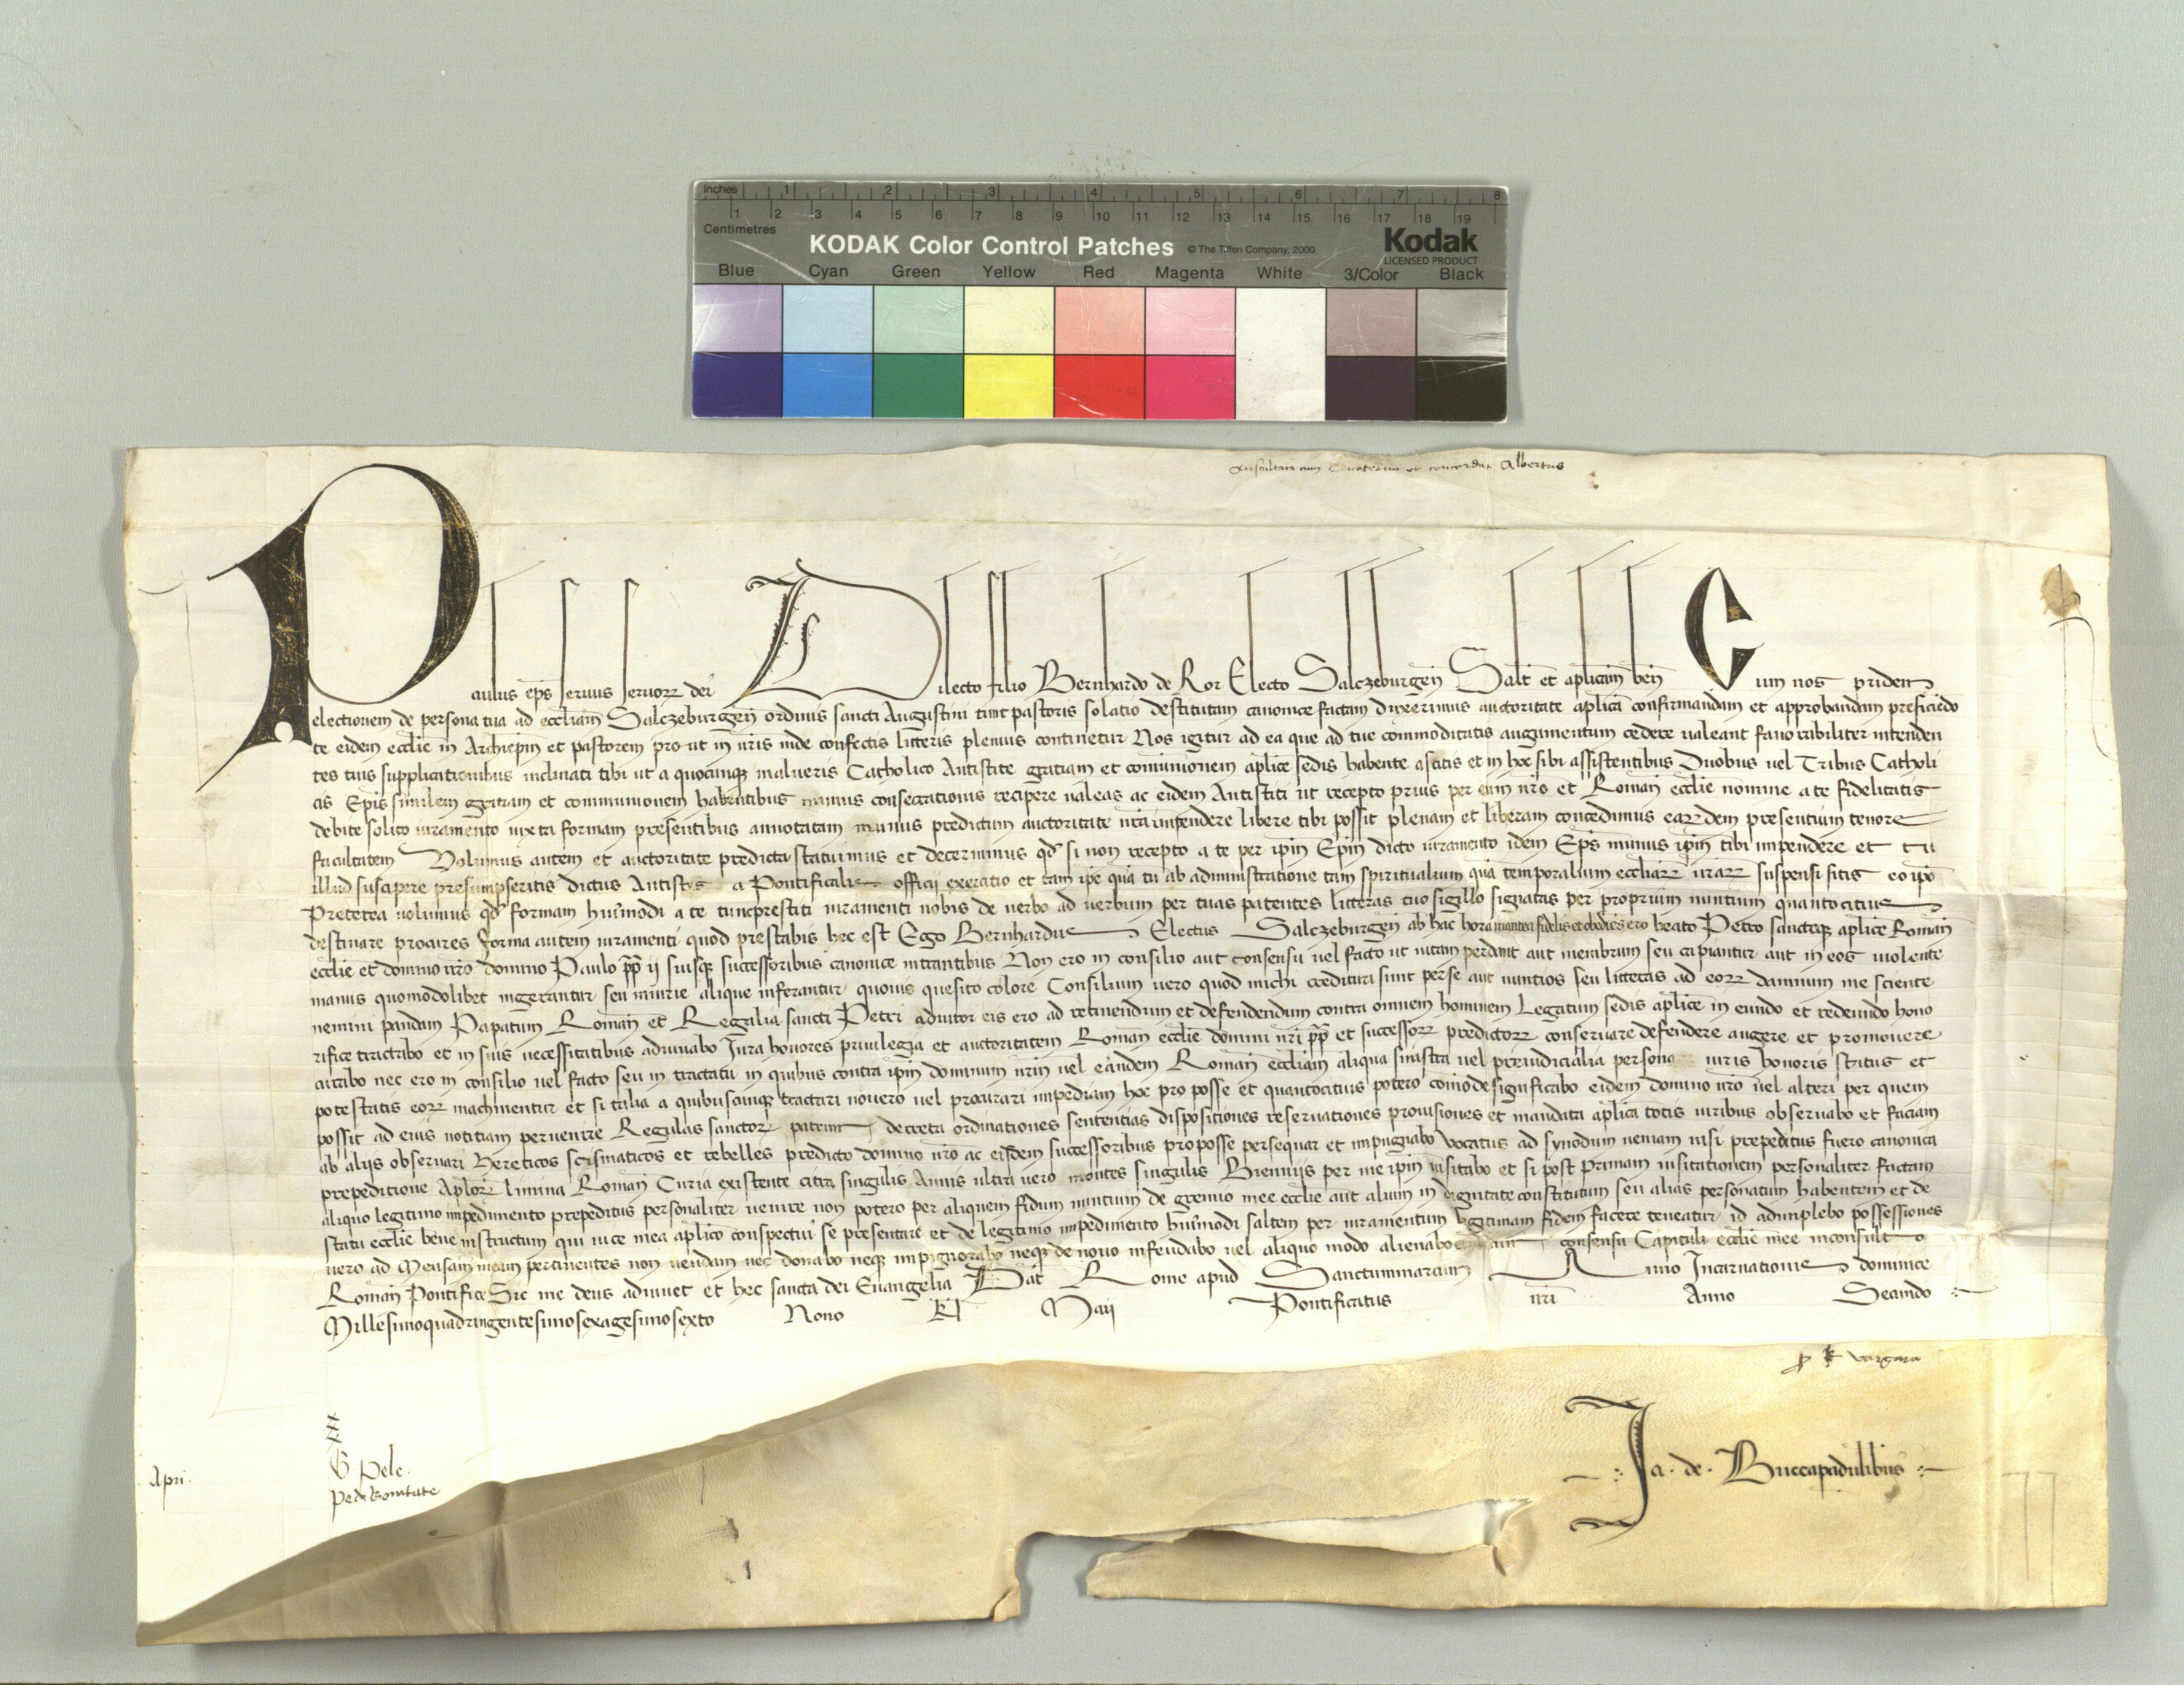 Inches 1 2 3 4 5 6 7 8
Centimetres 1 2 3 4 5 6 7 8 9 10 11 12 13 14 15 16 17 18 19
KODAK Color Control Patches © The Tiffen Company, 2000 Kodak
LICENSED PRODUCT
Blue Cyan Green Yellow Red Magenta White 3/Color Black
Auscultata cum Quaterno et concordat Albertus
Paulus ep̄s seruus seruoꝝ dei Dilecto filio Bernhardo de Ror Electo Salczeburgeñ Salt̄ et apl̄icam ben̄ Cum nos pridem
electionem de persona tua ad eccl̄iam Salczeburgeñ ordinis sancti Augustini tunc pastoris solatio destitutam canonice factam duxerimus auctoritate apl̄ica confirmandam et approbandam preficiēdo
te eidem eccl̄ie in Archiep̄m et pastorem prout in nr̄is inde confectis litteris plenius continetur Nos igitur ad ea que ad tue com̄oditatis augumentum cedere ualeant fauorabiliter intenden
tes tuis supplicationibus inclinati tibi ut a quocunqꝫ malueris Catholico Antistite gratiam et com̄unionem apl̄ice sedis habente ascitis et in hoc sibi assistentibus Duobus uel Tribus Catholi
cis Ep̄is similem gratiam et communionem habentibus munus consecrationis recipere ualeas ac eidem Antistiti ut recepto prius per eum nr̄o et Romañ eccl̄ie nomine a te fidelitatis
debite solito iuramento iuxta formam presentibus annotatam munus predictum auctoritate nr̄a impendere libere tibi possit plenam et liberam concedimus earꝝdem presentium tenore
facultatem Volumus autem et auctoritate predicta statuimus et decernimus qd̄ si non recepto a te per ip̄m Ep̄m dicto iuramento idem Ep̄s munus ip̄m tibi impendere et tu
illud suscipere presumpseritis dictus Antistes a Pontificalis officij exercitio et tam ip̄e quā tu ab administratione tam spiritualium quā temporalium eccl̄iarꝝ ur̄arꝝ suspensi sitis eo ip̄o
Preterea uolumus qd̄ formam hui̅modi a te tuncprestiti iuramenti nobis de uerbo ad uerbum per tuas patentes litteras tuo sigillo signatas per proprium nuntium quantocitius
destinare procures Forma autem iuramenti quod prestabis hec est Ego Bernhardus Electus Salczeburgeñ ab hac hora inantea fidelis et obediēs ero beato Petro sancteqꝫ apl̄ice Romañ
eccl̄ie et domino nr̄o domino Paulo pp̄ ij suisqꝫ successoribus canonice intrantibus Non ero in consilio aut consensu uel facto ut uitam perdant aut membrum seu capiantur aut in eos uiolente
manus quomodolibet ingerantur seu iniurie alique inferantur quouis quesito colore Consilium uero quod michi credituri sunt per se aut nuntios seu litteras ad eorꝝ damnum me sciente
nemini pandam Papatum Romañ et Regalia sancti Petri adiutor eis ero ad retinendum et defendendum contra omnem hominem Legatum sedis apl̄ice in eundo et redeundo hono
rifice tractabo et in suis necessitatibus adiuuabo Iura honores priuilegia et auctoritatem Romañ eccl̄ie domini nr̄i pp̄ et successorꝝ predictorꝝ conseruare defendere augere et promouere
curabo nec ero in consilio uel facto seu in tractatu in quibus contra ip̄m dominum nr̄m uel eandem Romañ eccl̄iam aliqua sinistra uel preiudicialia persone iuris honoris status et
potestatis eorꝝ machinentur et si talia a quibuscunqꝫ tractari nouero uel procurari impediam hoc pro posse et quantocitius potero com̄ode significabo eidem domino nr̄o uel alteri per quem
possit ad eius notitiam peruenire Regulas sanctorꝝ patrum decreta ordinationes sententias dispositiones reseruationes prouisiones et mandata apl̄ica totis uiribus obseruabo et faciam
ab alijs obseruari Hereticos scismaticos et rebelles predicto domino nr̄o ac eisdem successoribus pro posse persequar et impugnabo Vocatus ad synodum ueniam nisi prepeditus fuero canonica
prepeditione Apl̄orꝝ limina Romañ Curia existente citra singulis Annis ultra uero montes singulis Biennijs per me ip̄m uisitabo et si post primam uisitationem personaliter factam
aliquo legitimo impedimento prepeditus personaliter uenire non potero per aliquem fidum nuntium de gremio mee eccl̄ie aut alium in dignitate constitutum seu alias personatum habentem et de
statu eccl̄ie bene instructum qui uice mea apl̄ico conspectui se presentare et de legitimo impedimento hui̅modi saltem per iuramentum legitimam fidem facere teneatur id adimplebo possessiones
uero ad Mensam meam pertinentes non uendam nec donabo neqꝫ impignorabo neqꝫ de nouo infeudabo uel aliquo modo alienabo consensu Capituli eccl̄ie mee inconsulto
Romañ Pontifice Sic me deus adiuuet et hec sancta dei Euangelia Dat̄ Rome apud Sanctummarcum Anno Incarnationis dominice
Millesimoquadringentesimosexagesimosexto Nono kl̄ Maij Pontificatus nr̄i Anno Secundo
p k vergara
xxx
G Pele
Apri
P de Bonitate
Ja. de. Buccapadulibus